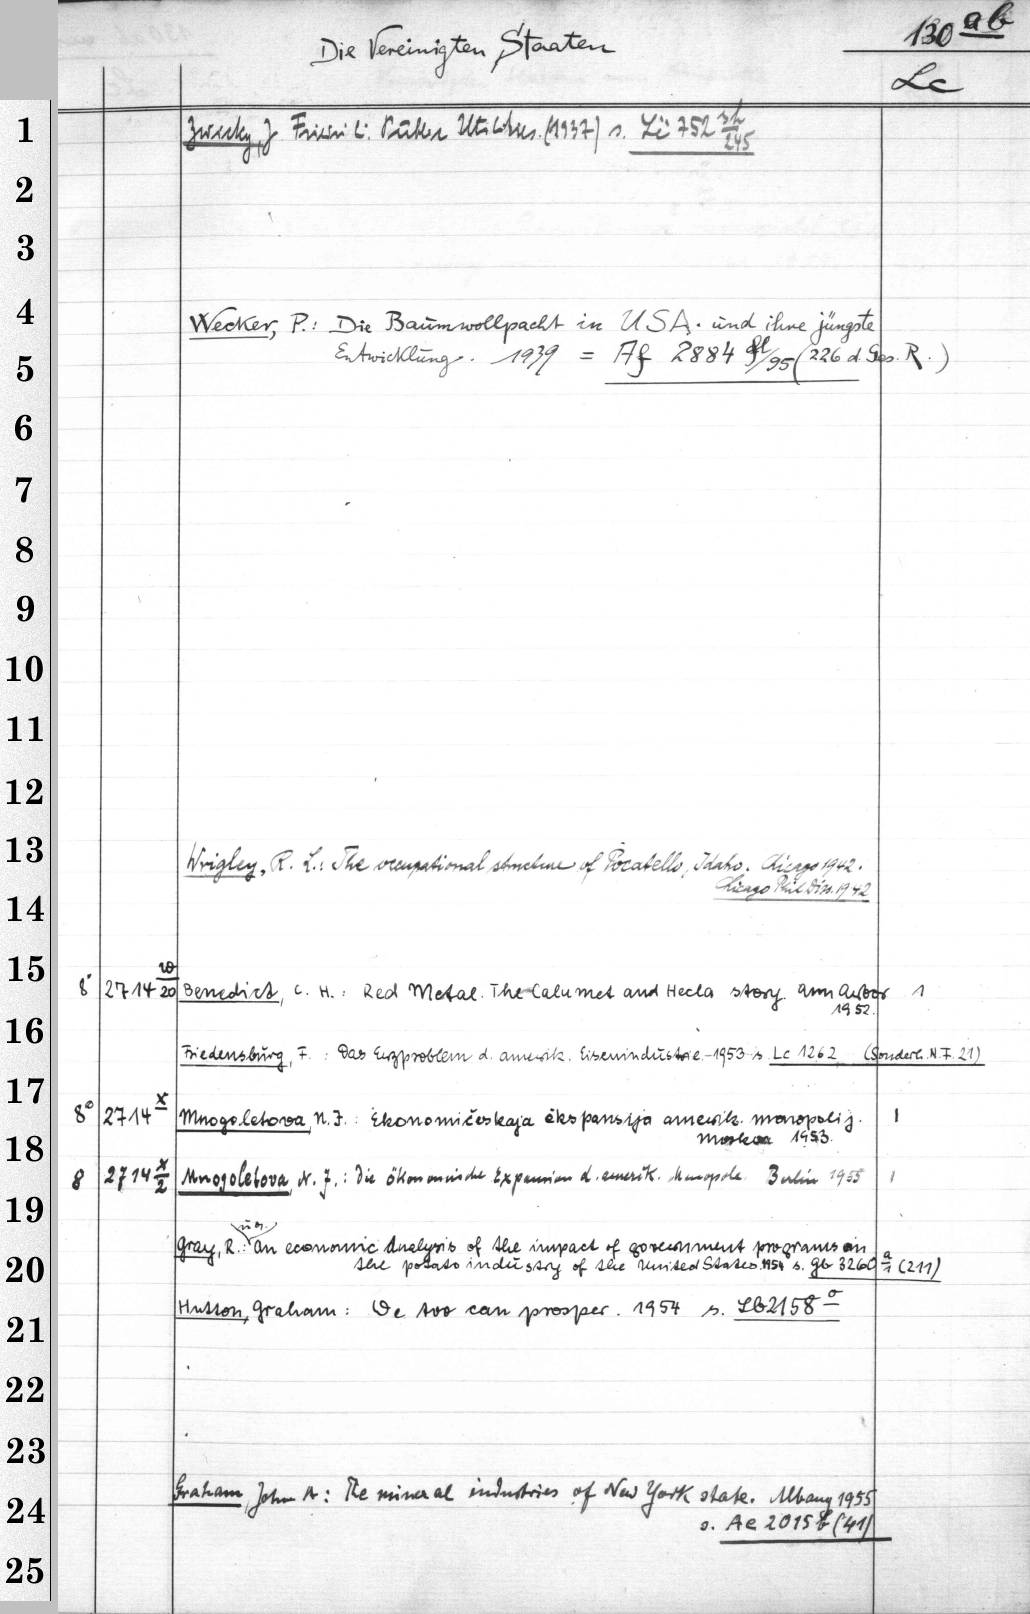 Die Vereinigten Staaten 130 ab
Lc
1 Zwicky, J. s. Lü 752 sh/245 (1937)
2
3
4 Wecker, P.: Die Baumwollpacht in USA. und ihre jüngste
5 Entwicklung. 1939 = Af 2884 fl/95 (226 d. Ges. R.)
6
7
8
9
10
11
12
13 Wrigley, R. L.: The occupational structure of Pocatello, Idaho. Chicago 1942.
14 Chicago Phil Diss. 1942
15 8° 2714 w/20 Benedict, C. H.: Red Metal. The Calumet and Hecla story. Ann Arbor 1
1952.
16 Friedensburg, F.: Das Erzproblem d. amerik. Eisenindustrie. 1953 s. Lc 1262 (Sonderh. N.F. 21)
17 8° 2714 x Mnogoletova, N.J.: Ekonomičeskaja ėkspansija amerik. monopolij. 1
18 Moskva 1953.
8 2714 x/2 Mnogoletova, N. J.: Die ökonomische Expansion d. amerik. Monopole. Berlin 1955 1
19 u.a.
Gray, R.: An economic Analysis of the impact of government programs on
20 the potato industry of the United States. 1954 s. Gb 3260 a/1 (211)
21 Hutton, Graham: We too can prosper. 1954 s. Lb 2158 o
22
23
24 Graham, John A.: The mineral industries of New York state. Albany 1955
s. Ae 2015 b (41)
25